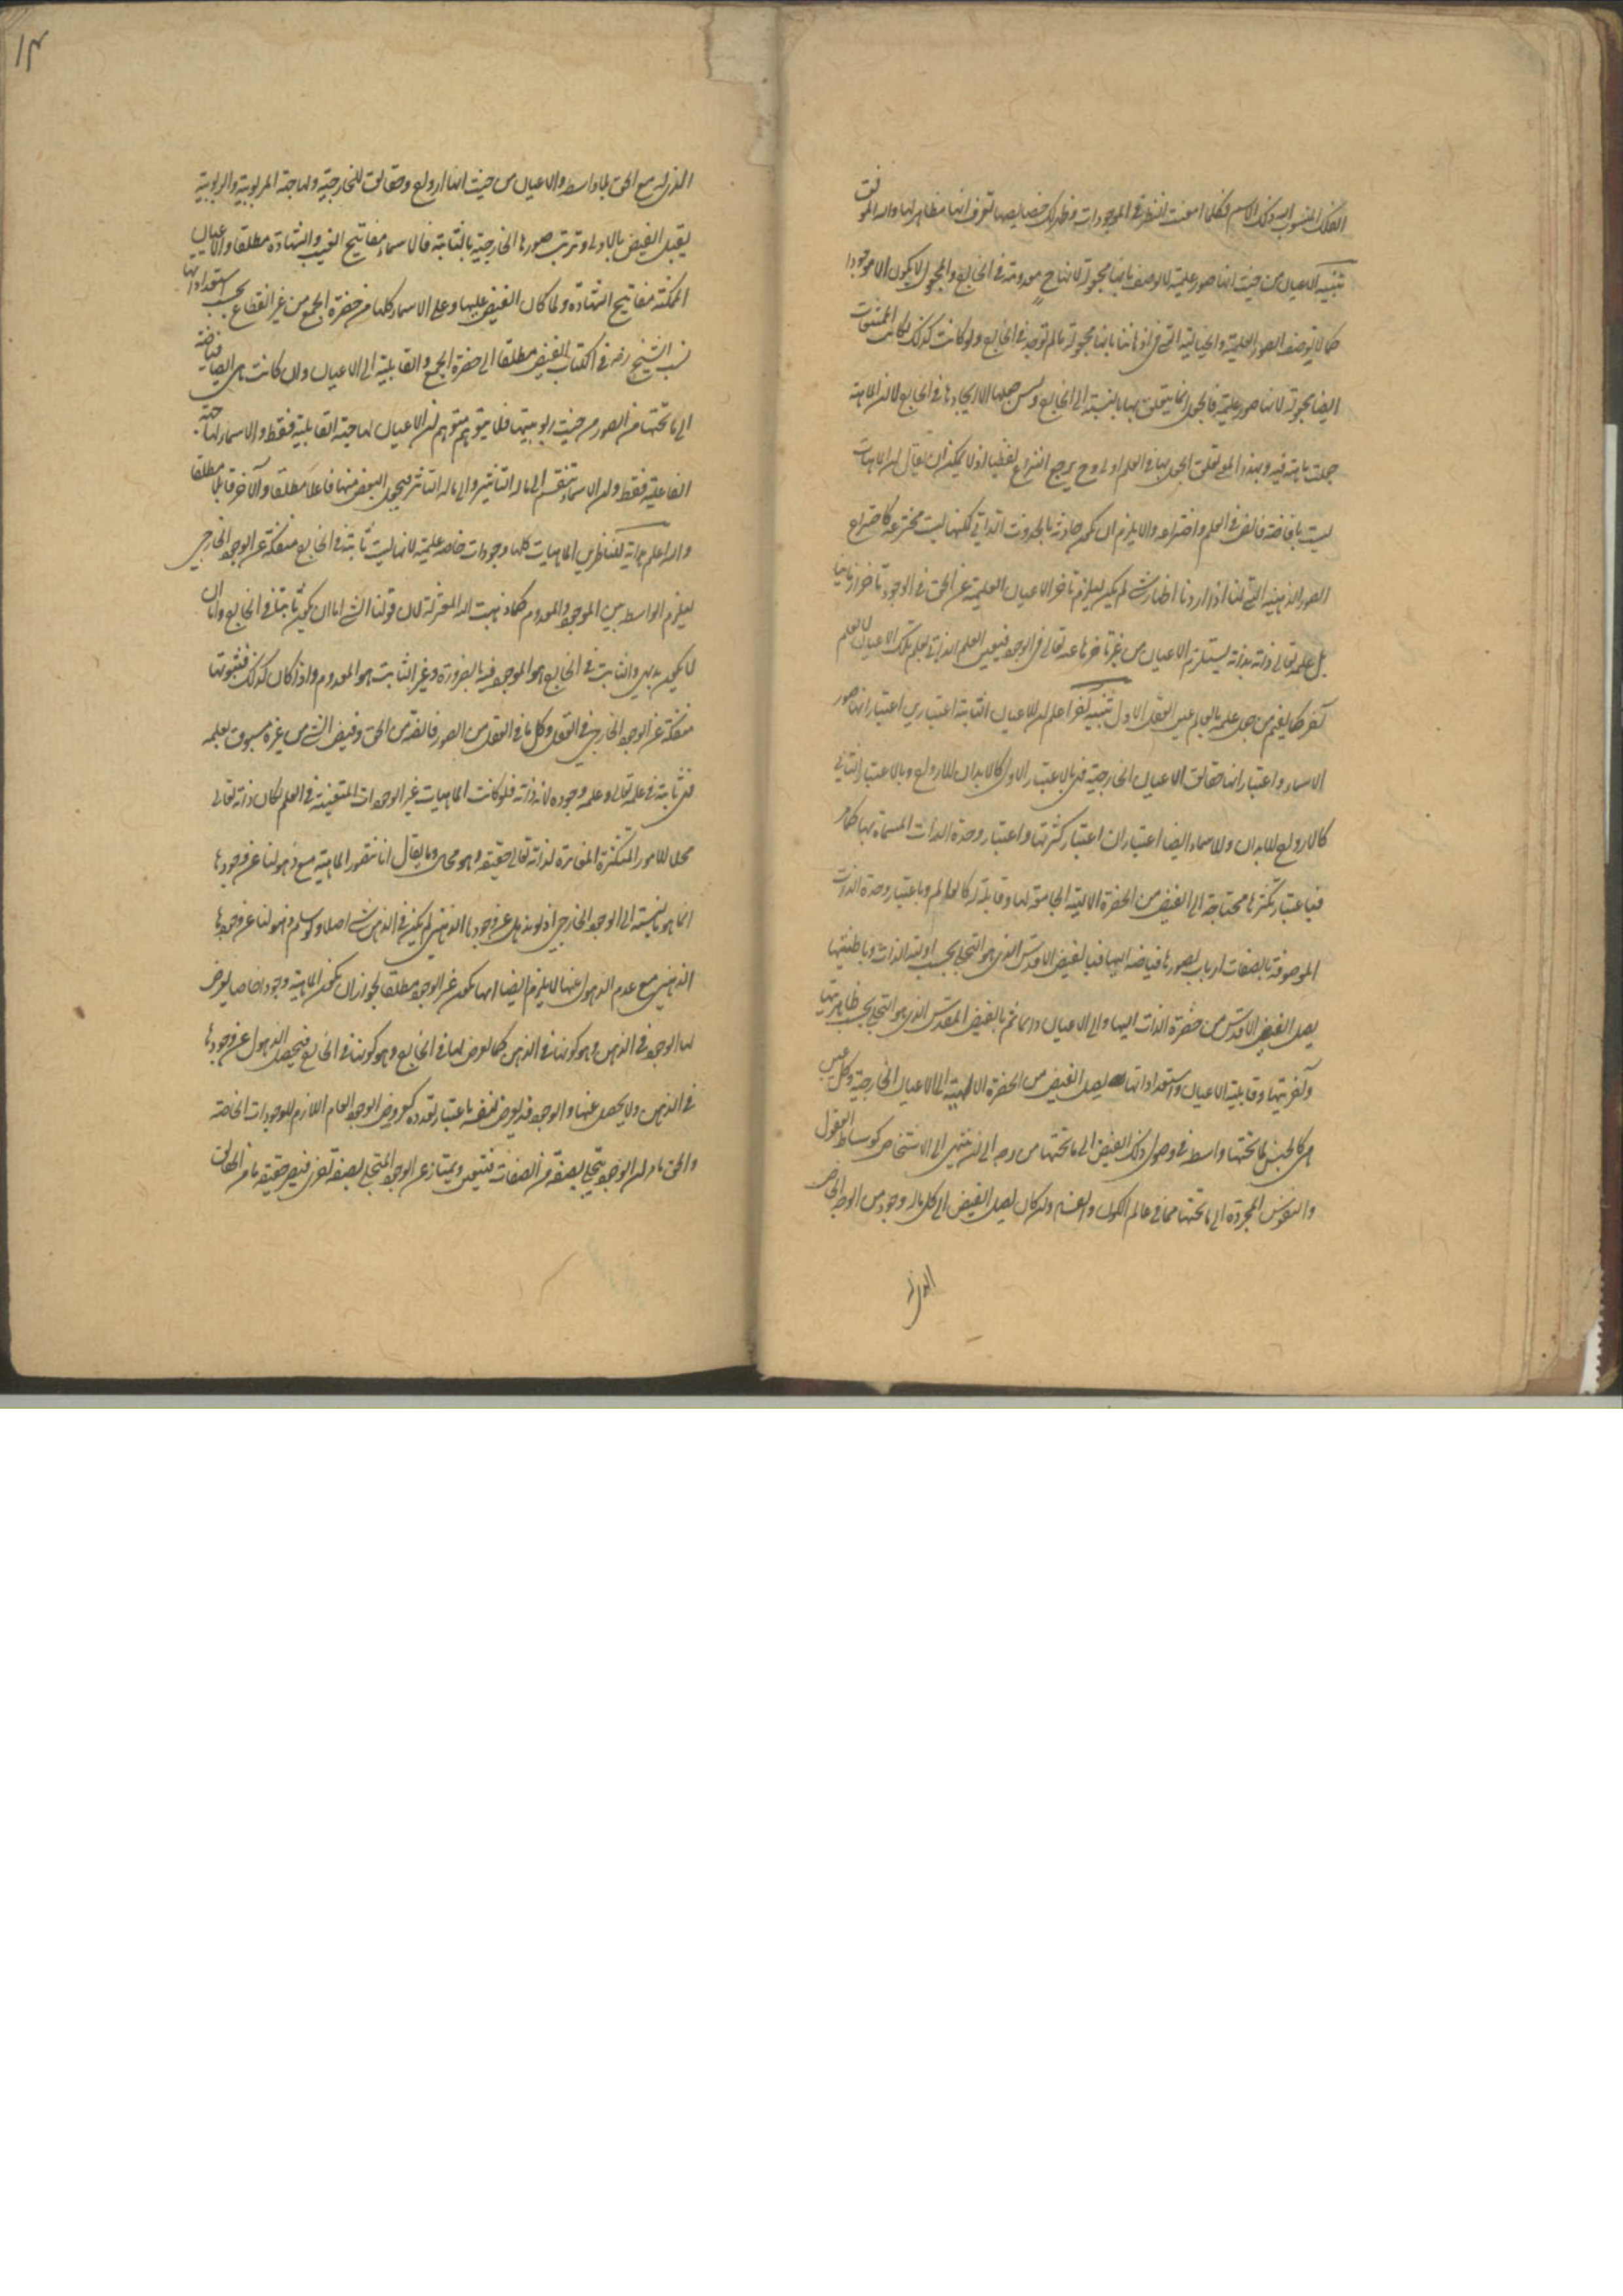 الفلك المنسوب اليه ذلك الاسم فكلما امعنت النظر فى الموجودات وظهر لك خصايصها تعرف انها مظاهر لها والله الموفق
تنبيه الاعيان من حيث انها صور علمية لا توصف بانها مجعولة لانها ح معدومة فى الخارج والمجعول لا يكون الا موجودا
كما لا توصف الصور العلمية والخيالية التى فى اذهاننا بانها مجعولة ما لم توجد فى الخارج ولو كانت كذلك لكانت الممتنعات
ايضا مجعولة لانها صور علمية فالجعل انما يتعلق بها بالنسبة الى الخارج وليس جعلها الا ايجادها فى الخارج لا ان الماهية
جعلت ماهية فيه وبهذا المعنى تعلق الجعل بها فى العلم اولى وح يرجع النزاع لفظيا اذ لا يمكن ان يقال ان الماهيات
ليست بافاضة فائض فى العلم واختراعه والا يلزم ان لا تكون حادثة بالحدوث الذاتى لكنها ليست مخترعة كاختراع
الصور الذهنية التى لنا اذا اردنا اظهار شئ لم يكن ليلزم تاخر الاعيان العلمية عن الحق فى الوجود تاخرا زمانيا
بل علمه تعالى ذاته بذاته يستلزم الاعيان من غير تاخرها عنه تعالى فى الوجود فبعين العلم الذاتى يعلم تلك الاعيان لا بعلم
آخر كما يفهم من جعل علمه بالعالم عين العقل الاول تنبيه آخر اعلم ان للاعيان الثابتة اعتبارين اعتبار انها صور
الاسماء واعتبار انها حقايق الاعيان الخارجية فهى بالاعتبار الاول كالابدان للارواح وبالاعتبار الثانى
كالارواح للابدان وللاسماء ايضا اعتباران اعتبار كثرتها واعتبار وحدة الذات المسماة بها كما مر
فباعتبار تكثرها محتاجة الى الفيض من الحضرة الالهية الجامعة لها وقابلة له كالعالم وباعتبار وحدة الذات
الموصوفة بالصفات ارباب لصورها فياضة اليها فبالفيض الاقدس الذى هو التجلى بحسب اولية الذات وباطنيتها
يصل الفيض الاقدس من حضرة الذات اليها والى الاعيان دائما ثم بالفيض المقدس الذى هو التجلى بحسب ظاهريتها
وآخريتها وقابلية الاعيان واستعداداتها يصل الفيض من الحضرة الالهية الى الاعيان الخارجية وكل عين
هى كالجنس لما تحتها واسطة فى وصول ذلك الفيض الى ما تحتها من وجه الى ان ينتهى الى الاشخاص كوساطة العقول
والنفوس المجردة الى ما تحتها مما فى عالم الكون والفساد وان كان يصل الفيض الى كل ما له وجود من الوجه الخاص
الذى له
١٣
الذى له مع الحق بلا واسطة والاعيان من حيث انها ارواح وحقايق للخارجية ولها جهة المربوبية والربوبية
يقبل الفيض بالاولى وترب صورها الخارجية بالثانية فالاسماء مفاتيح الغيب والشهادة مطلقا والاعيان
الممكنة مفاتيح الشهادة ولما كان الفيض عليها وعلى الاسماء كلها من حضرة الجمع من غير انقطاع بحسب استعداداتها
نسب الشيخ رضه فى الكتاب الفيض مطلقا الى حضرة الجمع والقابلية الى الاعيان وان كانت هى ايضا فياضة
الى ما تحتها من الصور من حيث ربوبيتها فلا يتوهم متوهم ان الاعيان لها جهة القابلية فقط والاسماء لها جهة
الفاعلية فقط وان الاسماء تنقسم الى ما له التاثير والى ما له التاثر فيجعل البعض منها فاعلا مطلقا والآخر قابلا مطلقا
والله اعلم هداية للناظرين الماهيات كلها وجودات خاصة علمية لانها ليست ثابتة فى الخارج منفكة عن الوجود الخارجى
ليلزم الواسطة بين الموجود والمعدوم كما ذهبت اليه المعتزلة لان قولنا الشئ اما ان يكون ثابتا فى الخارج واما ان
لا يكون بديهى والثابت فى الخارج هو الموجود فيه بالضرورة وغير الثابت هو المعدوم واذا كان كذلك فثبوتها
منفكة عن الوجود الخارجى فى العقل وكل ما فى العقل من الصور فائضة من الحق وفيض الشئ من غيره مسبوق بعلمه
فهى ثابتة فى علمه تعالى وعلمه وجوده لانه ذاته فلو كانت الماهيات غير الوجودات المتعينة فى العلم لكان ذاته تعالى
محلا للامور المتكثرة المغايرة لذاته تعالى حقيقة وهو محال وما يقال انا نتصور الماهية مع ذهولنا عن وجودها
انما هو بالنسبة الى الوجود الخارجى اذ لو نذهل عن وجودها الذهنى لم يكن فى الذهن شئ اصلا ولو سلم ذهولنا عن وجودها
الذهنى مع عدم الذهول عنها لا يلزم ايضا انها تكون غير الوجود مطلقا لجواز ان تكون الماهية وجودا خاصا يعرض
لها الوجود فى الذهن وهو كونها فى الذهن كما يعرض لها فى الخارج وهو كونها فى الخارج فيحصل الذهول عن وجودها
فى الذهن ولا يحصل عنها والوجود قد يعرض لنفسه باعتبار تعدده كعروض الوجود العام اللازم للوجودات الخاصة
والحق ما مر ان الوجود يتجلى بصفة من الصفات فيتعين ويمتاز عن الوجود المتجلى بصفة اخرى فيصير حقيقة ما من الحقايق